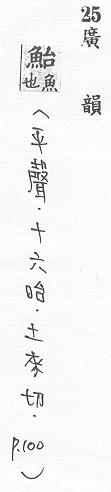 25廣韻
鮐魚也
（平聲．十六咍．土來切．P.100）